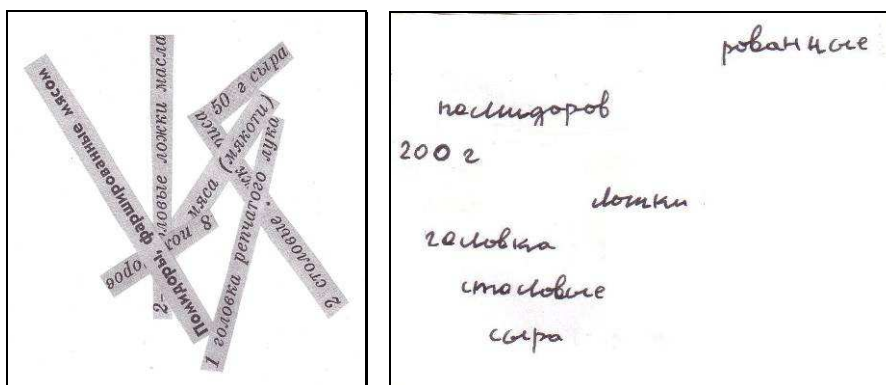 Помидоры, фаршированные мясом
ловые ложки масла
50 г сыра
риса
мяса (мякоти)
8
1 головка репчатого лука
2 столовые
рованные
помидоров
200 г
ложки
головка
столовые
сыра